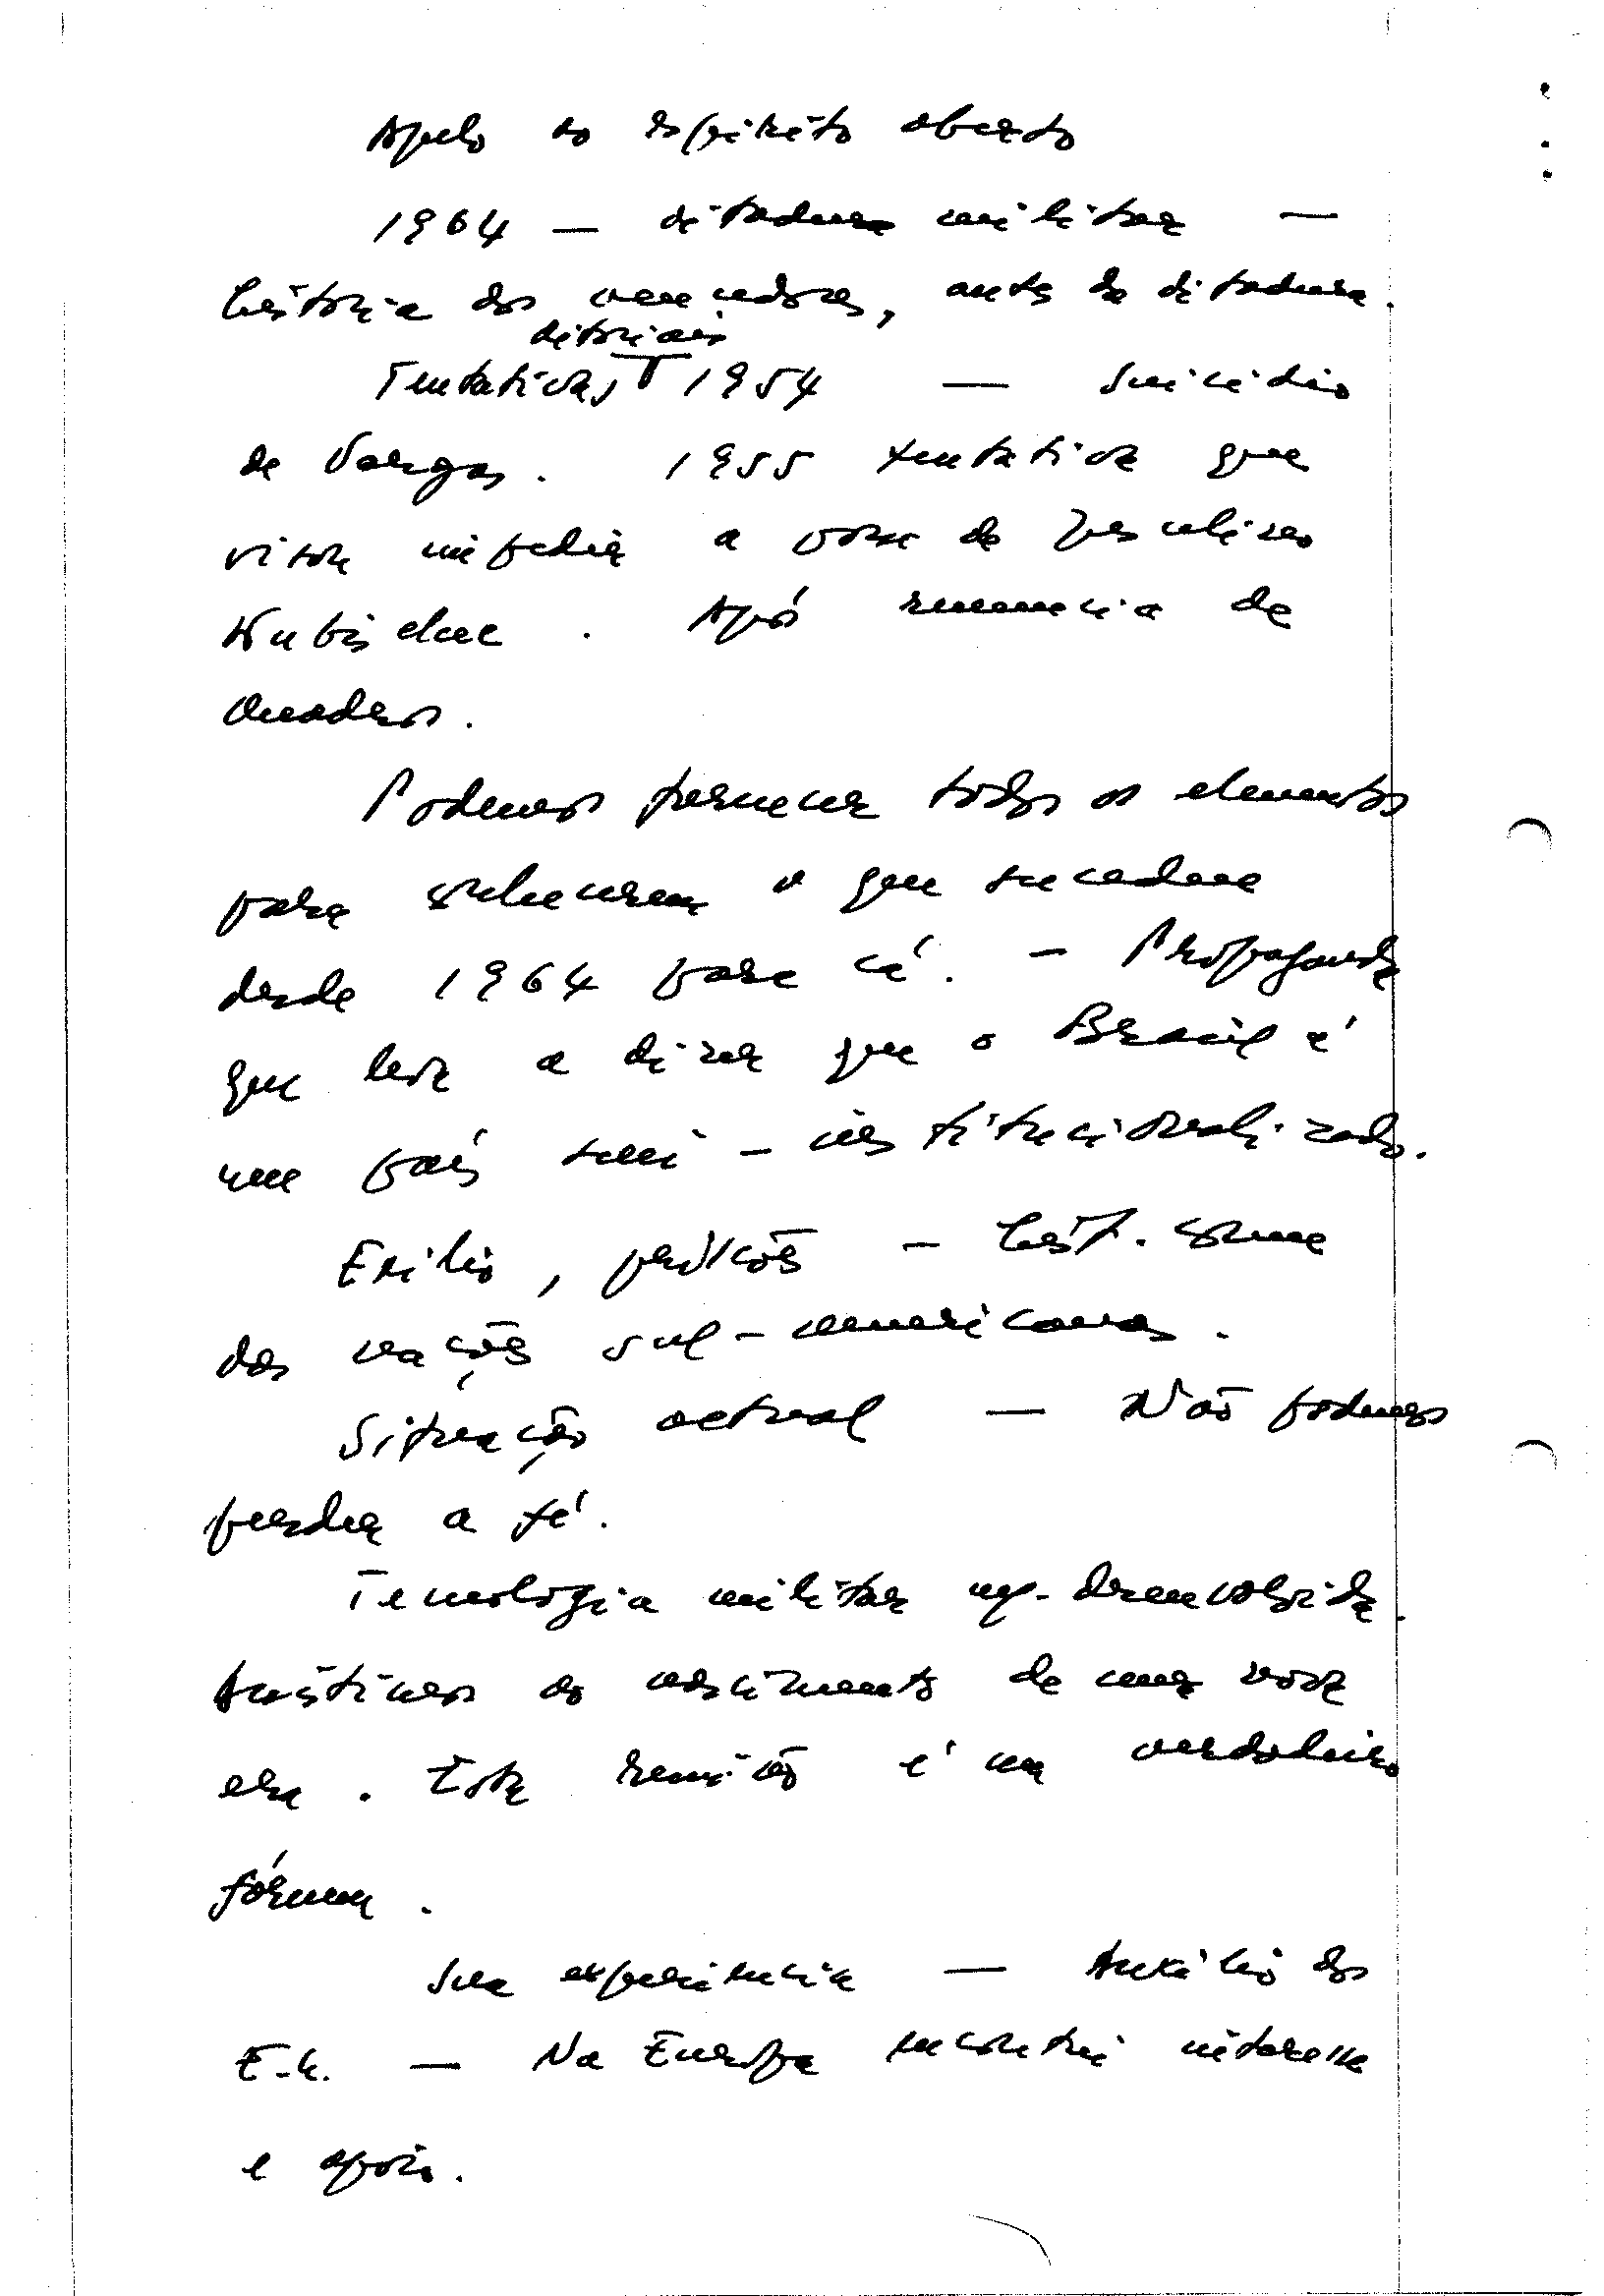 Apelo ao espírito aberto
1964 — ditadura militar —
história dos vencedores, antes da ditadura.
ditoriais
Tentativas 1954 — suicídio
de Vargas. 1955 tentativa que
visou impedir a posse de Juscelino
Kubischec. Após renuncia de
Quadros.
Podemos fornecer todos os elementos
para esclecerem o que sucedeu
desde 1964 para cá. — Propaganda
que leva a dizer que o Brasil é
um país semi-institucionalizado.
Exílio, prisões — hist. comum
das nações sul-americanas.
Situação actual — Não podemos
perder a fé.
Tecnologia militar sup. desenvolvida.
Assistimos ao nascimento de uma nova
era. Esta reunião é um verdadeiro
fórum.
Sua experiência — Auxílio dos
E.U. — Na Europa encontrei interesse
e apoio.